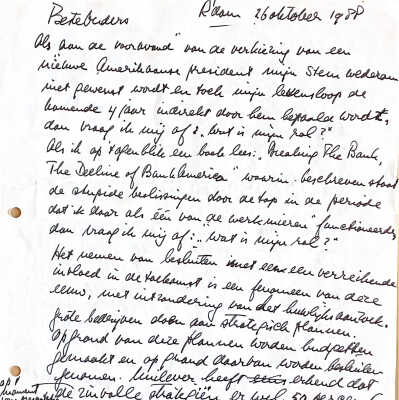 Betebuders R'dam 26 oktober 1988
Als aan de vooravond van de verkiezing van een
nieuwe Amerikaanse president mijn stem wederom
niet gewenst wordt en toch mijn levensloop de
komende 4 jaar indirekt door hem bepaald wordt,
dan vraag ik mij af: "Wat is mijn rol?"
Als ik op 't ogenblik een boek lees: "Breaking The Bank,
The Decline of BankAmerica" waarin beschreven staat
de stupide beslissingen door de top in de periode
dat ik daar als één van de werkmieren functioneerde,
dan vraag ik mij af: "Wat is mijn rol?"
Het nemen van besluiten met een verreikende
invloed in de toekomst is een fenomeen van deze
eeuw, met uitzondering van het huwelijksaanzoek.
Grote bedrijven doen aan strategisch plannen.
Op grond van deze plannen worden budgetten
gemaakt en op grond daarvan worden besluiten
genomen. Unilever heeft erkend dat
op 't
moment
de zinvolle strategieën er wel 50